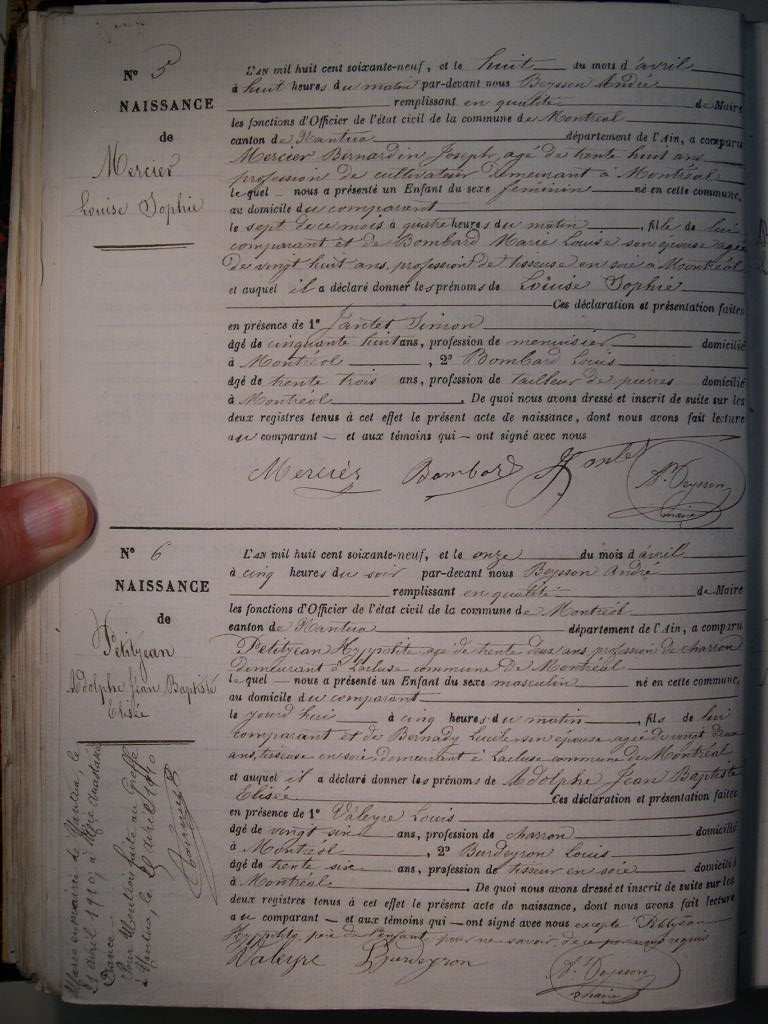 N° 5
NAISSANCE
de
Mercier
Louise Sophie
L'AN mil huit cent soixante-neuf, et le huit du mois d'avril
à huit heures du matin par-devant nous Beysson André
remplissant en qualité de Maire
les fonctions d'Officier de l'état civil de la commune de Montréal
canton de Nantua département de l'Ain, a comparu
Mercier Bernardin Joseph, agé de trente huit ans
profession de cultivateur demeurant à Montréal
lequel nous a présenté un Enfant du sexe féminin né en cette commune,
au domicile du comparant
le sept de ce mois à quatre heures du matin, fille de lui
comparant et de Bombard Marie Louise son épouse agée
de vingt huit ans, profession de tisseuse en soie à Montréal
et auquel il a déclaré donner les prénoms de Louise Sophie
Ces déclaration et présentation faites
en présence de 1° Jantet Simon
âgé de cinquante huit ans, profession de menuisier domicilié
à Montréal, 2° Bombard Louis
âgé de trente trois ans, profession de tailleur de pierres domicilié
à Montréal. De quoi nous avons dressé et inscrit de suite sur les
deux registres tenus à cet effet le présent acte de naissance, dont nous avons fait lecture
au comparant — et aux témoins qui — ont signé avec nous
Mercier Bombard Jantet
A. Beysson
maire
N° 6
NAISSANCE
de
Petitjean
Adolphe Jean Baptiste
Elisée
L'AN mil huit cent soixante-neuf, et le onze du mois d'avril
à cinq heures du soir par-devant nous Beysson André
remplissant en qualité de Maire
les fonctions d'Officier de l'état civil de la commune de Montréal
canton de Nantua département de l'Ain, a comparu
Petitjean Hyppolite agé de trente deux ans profession de charron
demeurant à Lacluse commune de Montréal
lequel — nous a présenté un Enfant du sexe masculin né en cette commune,
au domicile du comparant
le jourd'hui à cinq heures du matin, fils de lui
comparant et de Bernady Lucile son épouse agée de vingt deux
ans, tisseuse en soie, demeurant à Lacluse commune de Montréal
et auquel il a déclaré donner les prénoms de Adolphe Jean Baptiste
Elisée Ces déclaration et présentation faites
en présence de 1° Valeyre Louis
âgé de vingt six ans, profession de charron domicilié
à Montréal, 2° Burdeyron Louis
âgé de trente six ans, profession de tisseur en soie domicilié
à Montréal. De quoi nous avons dressé et inscrit de suite sur les
deux registres tenus à cet effet le présent acte de naissance, dont nous avons fait lecture
au comparant — et aux témoins qui — ont signé avec nous excepté Petitjean
Hyppolite, père de l'enfant pour ne savoir, de ce par nous requis
Valeyre Burdeyron
A. Beysson
maire
Marié en mairie de Nantua, le
avril 1910, à
Pour Mention faite au Greffe
à Nantua, le avril 1910